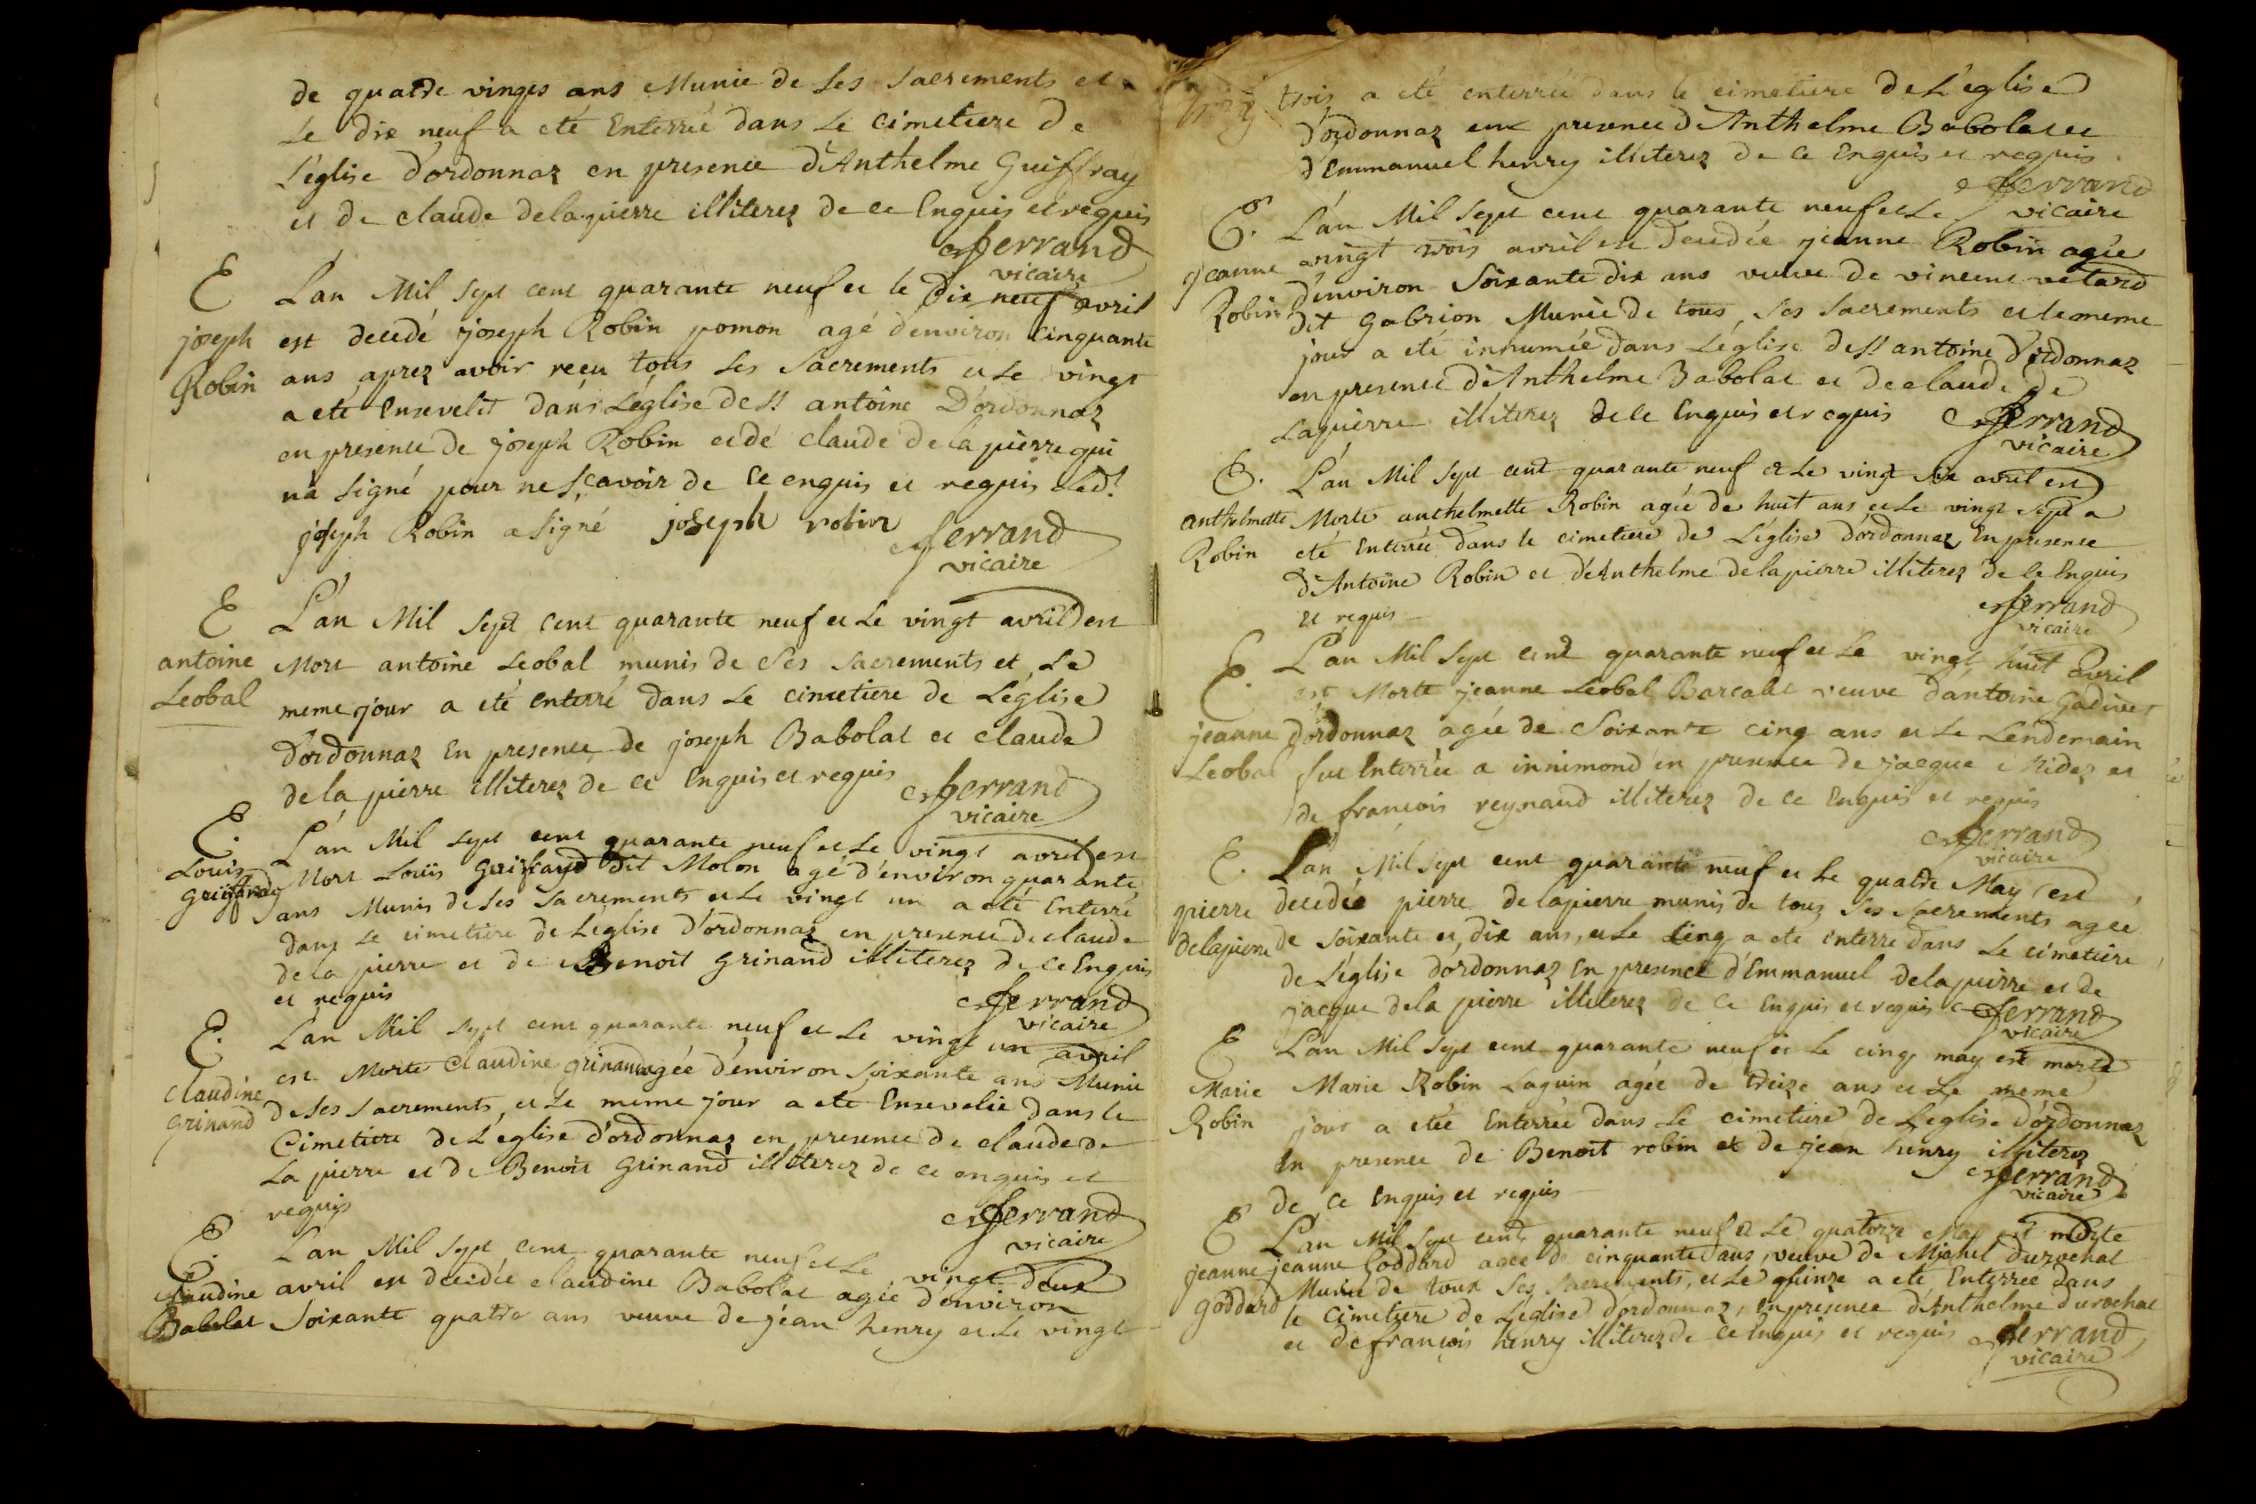 de quatre vingts ans Munie de ses sacrements et
Le dix neuf a eté Enterrée dans Le cimetiere de
L'église d'ordonnaz en presence d'Anthelme Guiffray
et de claude delapierre illiterez de ce Enquis et requis
ferrand
vicaire
E L'an Mil sept cent quarante neuf et le dix neuf avril
joseph est decedé joseph Robin pomon agé d'environ Cinquante
Robin ans aprez avoir reçu tous ses Sacrements et Le vingt
a eté Ensevelit dans L'église de st antoine D'ordonnaz
en presence de joseph Robin et de claude dela pierre qui
n'a signé pour ne sçavoir de ce enquis et requis Led.t
joseph Robin a signé joseph robin ferrand
vicaire
E L'an Mil sept cent quarante neuf et Le vingt avril est
antoine Mort antoine Leobal munis de ses sacrements et Le
Leobal meme jour a eté enterré dans Le cimetiere de L'église
D'ordonnaz En presence de joseph Babolat et claude
dela pierre illiterez de ce Enquis et requis ferrand
vicaire
E. L'an Mil sept cent quarante neuf et Le vingt avril est
Louis Mort Louis dit Molon agé d'environ quarante
ans Munis de ses sacrements et Le vingt un a eté Enterré
dans Le cimetiere de L'église d'ordonnaz en presence de claude
dela pierre et de Benoit grinand illiterez de ce Enquis
et requis ferrand
vicaire
E. L'an Mil sept cent quarante neuf et Le vingt un avril
claudine est Morte Claudine grinand agée d'environ soixante ans Munie
grinand de ses sacrements et Le meme jour a eté Ensevelie dans le
Cimetiere de L'église d'ordonnaz en presence de claude de
La pierre et de Benoit Grinand illiterez de ce enquis et
requis ferrand
vicaire
E. L'an Mil sept cent quarante neuf et Le vingt deux
claudine avril est decedée claudine Babolat agée d'environ
Babolat Soixante quatre ans veuve de jean henry et Le vingt
trois a eté enterrée dans le cimetiere de L'église
d'ordonnaz en presence d'Anthelme Babolat et
d'Emmanuel henry illiterez de ce Enquis et requis.
ferrand
vicaire
E. L'an Mil sept cent quarante neuf et Le
jeanne vingt trois avril est decedée jeanne Robin agée
Robin d'environ Soixante dix ans veuve de vincent vetard
dit Gabrion Munie de tous ses sacrements et le meme
jour a eté inhumée dans L'église de st antoine d'ordonnaz
en presence d'Anthelme Babolat et de claude de
Lapierre illiterez de ce Enquis et requis ferrand
vicaire
E. L'an Mil sept cent quarante neuf et Le vingt six avril est
anthelmette Morte anthelmette Robin agée de huit ans et Le vingt sept a
Robin eté Enterrée dans le cimetiere de L'église d'ordonnaz En presence
d'Antoine Robin et d'Anthelme delapierre illiterez de ce Enquis
et requis ferrand
vicaire
E. L'an Mil sept cent quarante neuf et Le vingt huit avril
est Morte jeanne Leobal Barcalet veuve d'antoine Gadivet
jeanne d'ordonnaz agée de Soixante cinq ans et Le Lendemain
Leobal fut Enterrée a innimond en presence de jacque et
de françois reynaud illiterez de ce Enquis et requis
ferrand
vicaire
E. L'an Mil sept cent quarante neuf et Le quatre May est
pierre decedée pierre delapierre munis de tous ses sacrements agée
delapierre de soixante et dix ans, et Le Cinq a eté enterré dans Le cimetiere
de L'église d'ordonnaz En presence d'Emmanuel delapierre et de
jacque dela pierre illiterez de ce Enquis et requis ferrand
vicaire
E L'an Mil sept cent quarante neuf et Le cinq may est morte
Marie Marie Robin Laguin agée de treize ans et Le meme
Robin jour a etée Enterrée dans Le cimetiere de L'église d'ordonnaz
En presence de Benoit robin et de jean henry illiterez
de ce Enquis et requis ferrand
vicaire
E L'an Mil sept cent quarante neuf et Le quatorze May est morte
jeanne jeanne Goddard agée de cinquante ans, veuve de Michel durochat
goddard Munie de toux ses sacrements, et Le quinze a eté Enterrée dans
le cimetiere de L'église d'ordonnaz, En presence d'Anthelme durochat
et de françois henry illiterez de ce Enquis et requis ferrand
vicaire